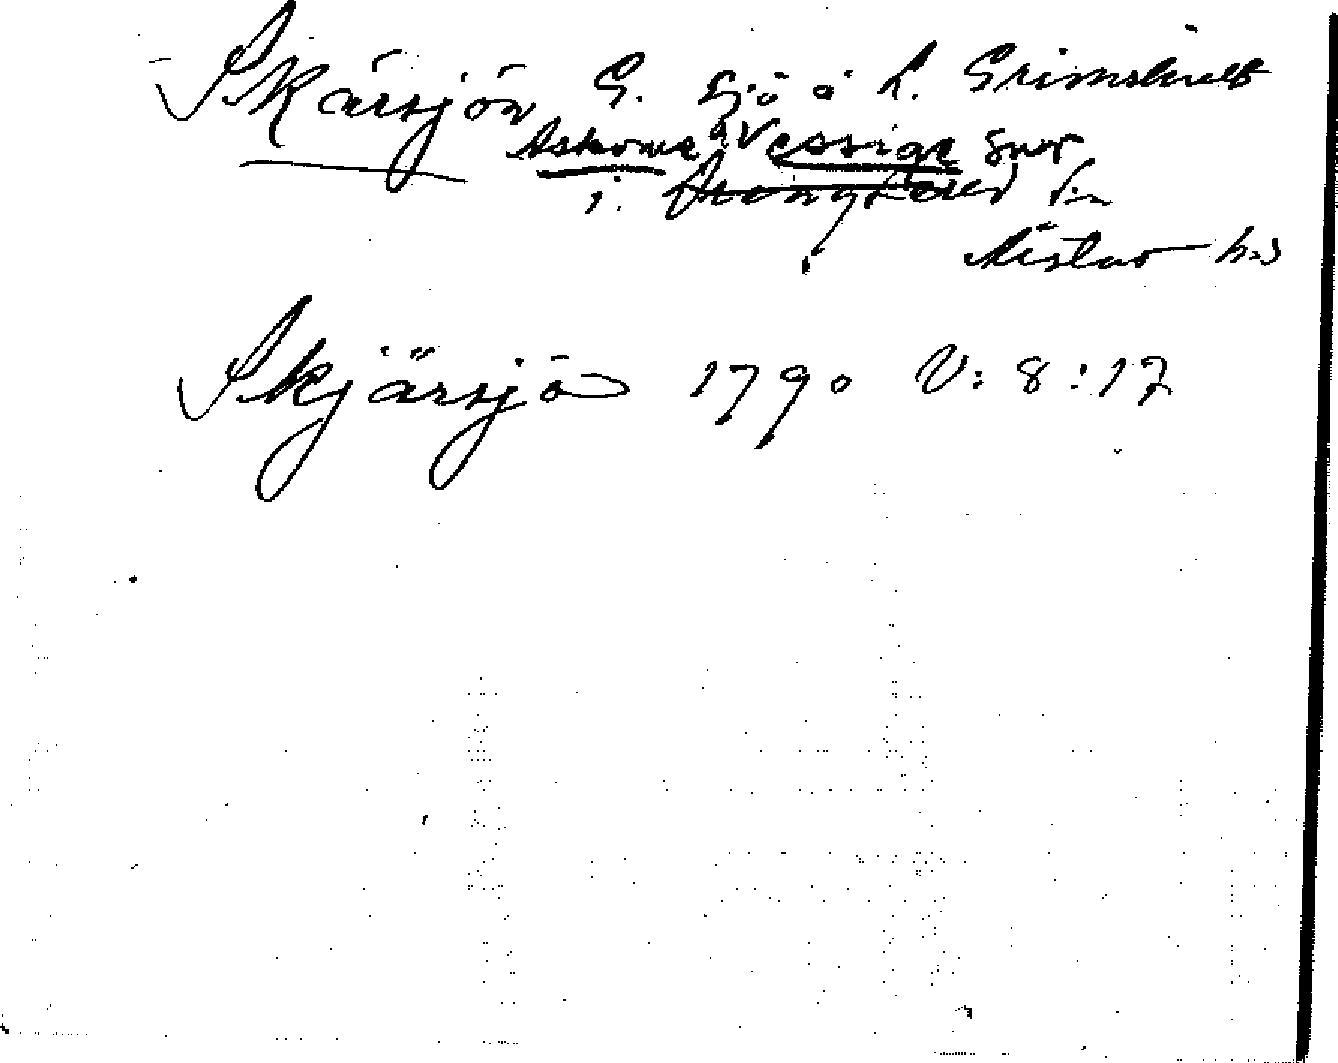 Skärsjön G. sjö å L. Grimshult
Askome o. Vessige snr
i. Krogsered sn
Årstad hd
Skjärsjö 1790 V: 8:17